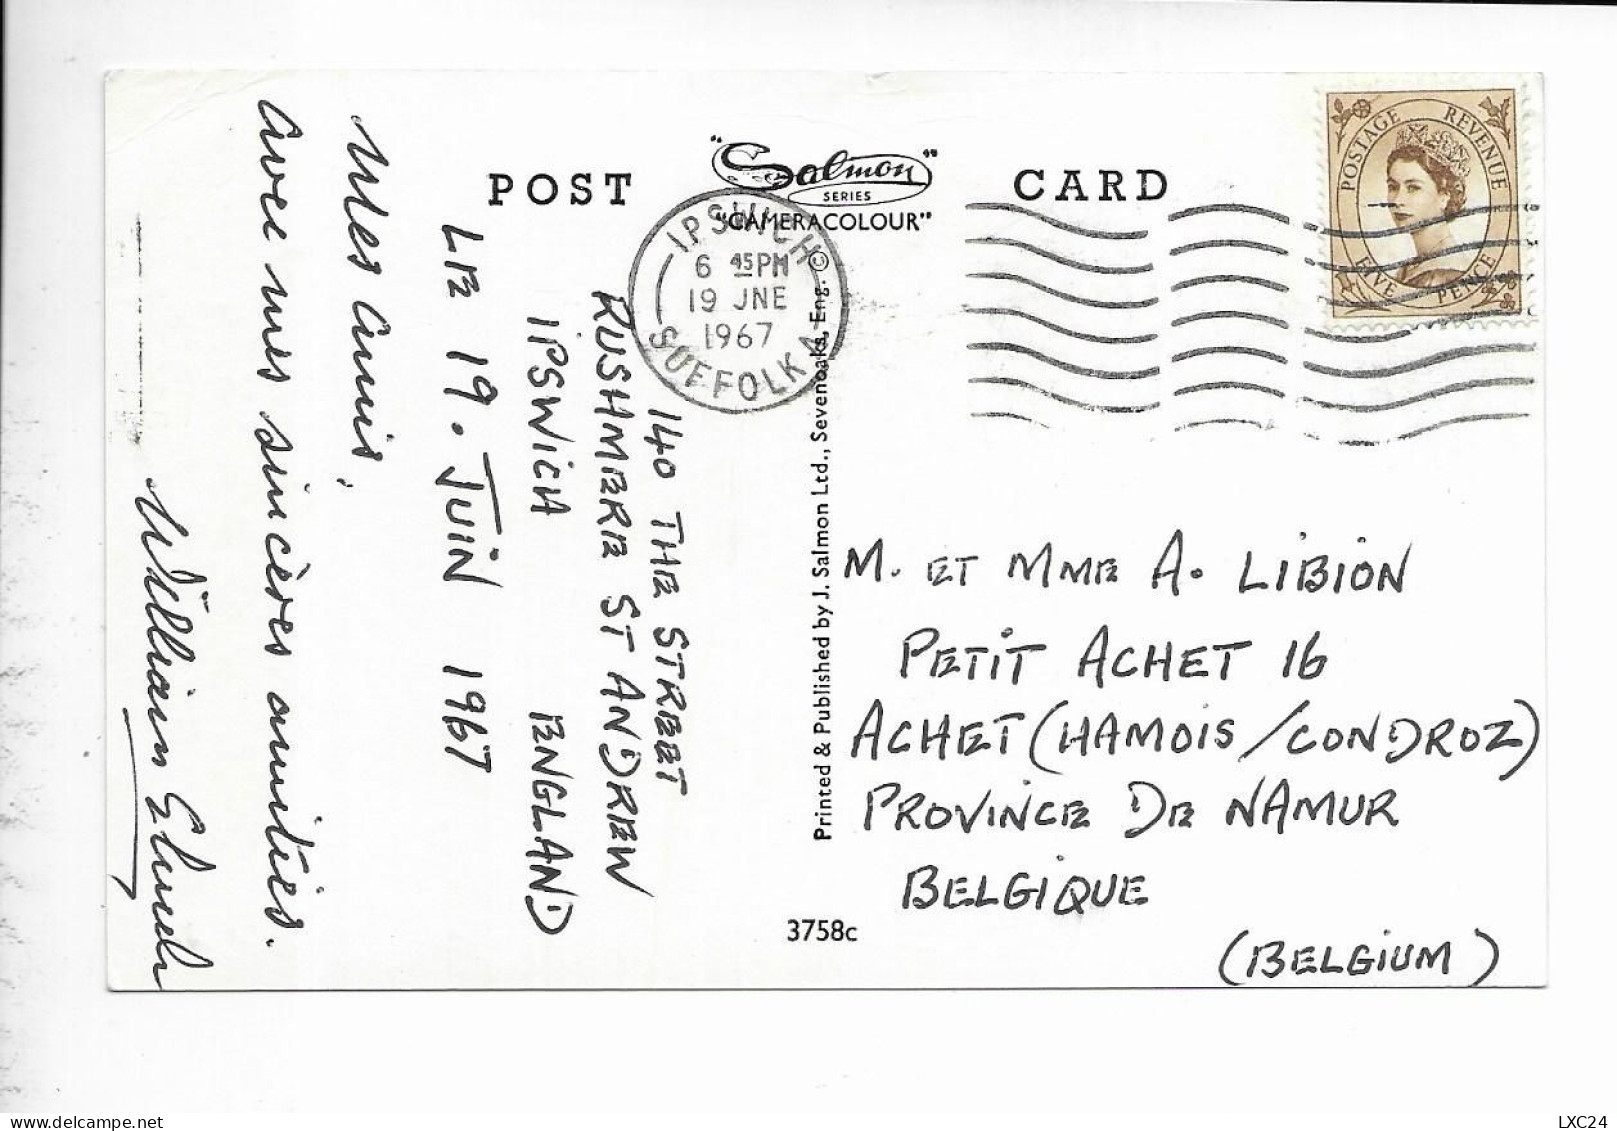 POST CARD
"Salmon"
SERIES
"CAMERACOLOUR"
IPSWICH
6 45PM
19 JNE
1967
SUFFOLK A
POSTAGE REVENUE
FIVE PENCE
140 THE STREET
RUSHMERE ST ANDREW
IPSWICH ENGLAND
LE 19. JUIN 1967
Mes amis,
Avec mes sincères amitiés.
William
Printed & Published by J. Salmon Ltd., Sevenoaks, Eng. ©
M. ET MME A. LIBION
PETIT ACHET 16
ACHET (HAMOIS/CONDROZ)
PROVINCE DE NAMUR
BELGIQUE
(BELGIUM)
3758c
www.delcampe.net
LXC24